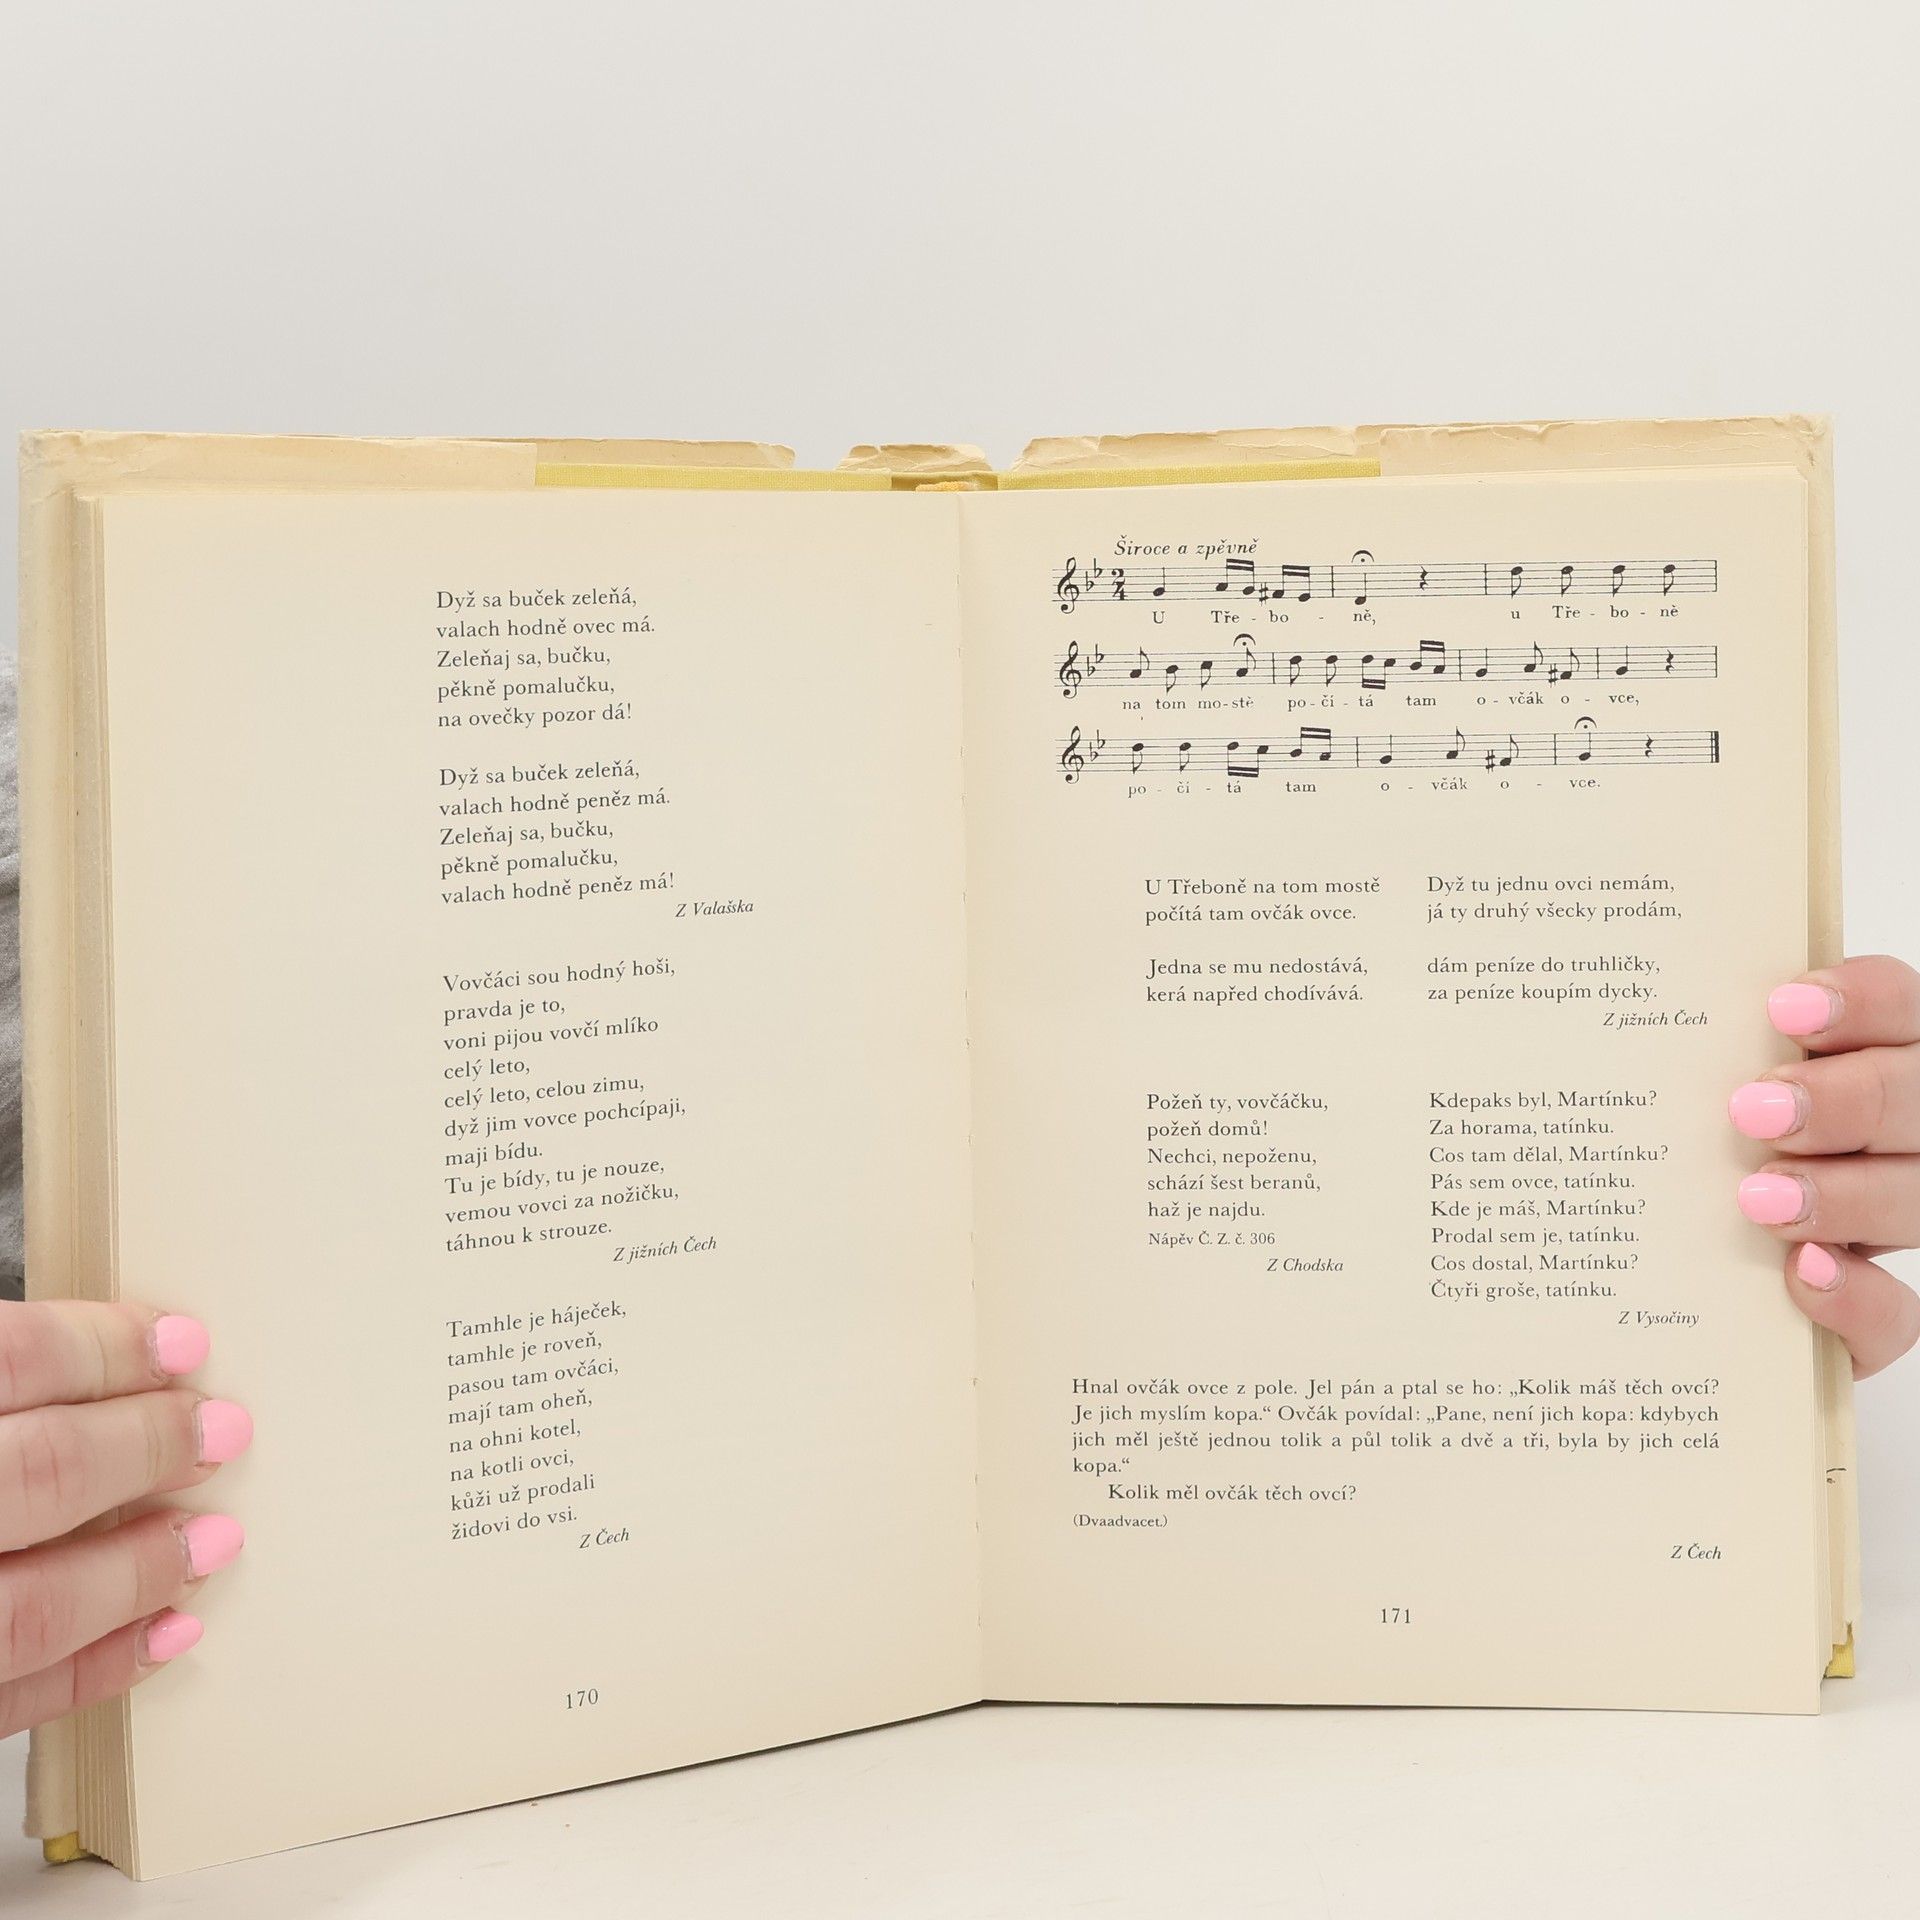 Dyž sa buček zeleňá,
valach hodně ovec má.
Zeleňaj sa, bučku,
pěkně pomalučku,
na ovečky pozor dá!
Dyž sa buček zeleňá,
valach hodně peněz má.
Zeleňaj sa, bučku,
pěkně pomalučku,
valach hodně peněz má!
Z Valašska
Vovčáci sou hodný hoši,
pravda je to,
voni pijou vovčí mlíko
celý leto,
celý leto, celou zimu,
dyž jim vovce pochcípaji,
maji bídu.
Tu je bídy, tu je nouze,
vemou vovci za nožičku,
táhnou k strouze.
Z jižních Čech
Tamhle je háječek,
tamhle je roveň,
pasou tam ovčáci,
mají tam oheň,
na ohni kotel,
na kotli ovci,
kůži už prodali
židovi do vsi.
Z Čech
170
Široce a zpěvně
2
4
U Tře - bo - ně, u Tře - bo - ně
na tom mo - stě po - čí - tá tam o - včák o - vce,
po - čí - tá tam o - včák o - vce.
U Třeboně na tom mostě
počítá tam ovčák ovce.
Jedna se mu nedostává,
kerá napřed chodívává.
Dyž tu jednu ovci nemám,
já ty druhý všecky prodám,
dám peníze do truhličky,
za peníze koupím dycky.
Z jižních Čech
Požeň ty, vovčáčku,
požeň domů!
Nechci, nepoženu,
schází šest beranů,
haž je najdu.
Nápěv Č. Z. č. 306
Z Chodska
Kdepaks byl, Martínku?
Za horama, tatínku.
Cos tam dělal, Martínku?
Pás sem ovce, tatínku.
Kde je máš, Martínku?
Prodal sem je, tatínku.
Cos dostal, Martínku?
Čtyři groše, tatínku.
Z Vysočiny
Hnal ovčák ovce z pole. Jel pán a ptal se ho: „Kolik máš těch ovcí?
Je jich myslím kopa.“ Ovčák povídal: „Pane, není jich kopa: kdybych
jich měl ještě jednou tolik a půl tolik a dvě a tři, byla by jich celá
kopa.“
Kolik měl ovčák těch ovcí?
(Dvaadvacet.)
Z Čech
171